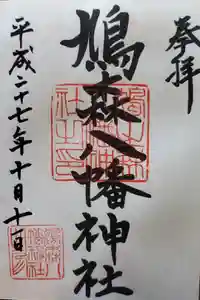 奉拝
鳩森八幡神社
平成二十七年十月十一日